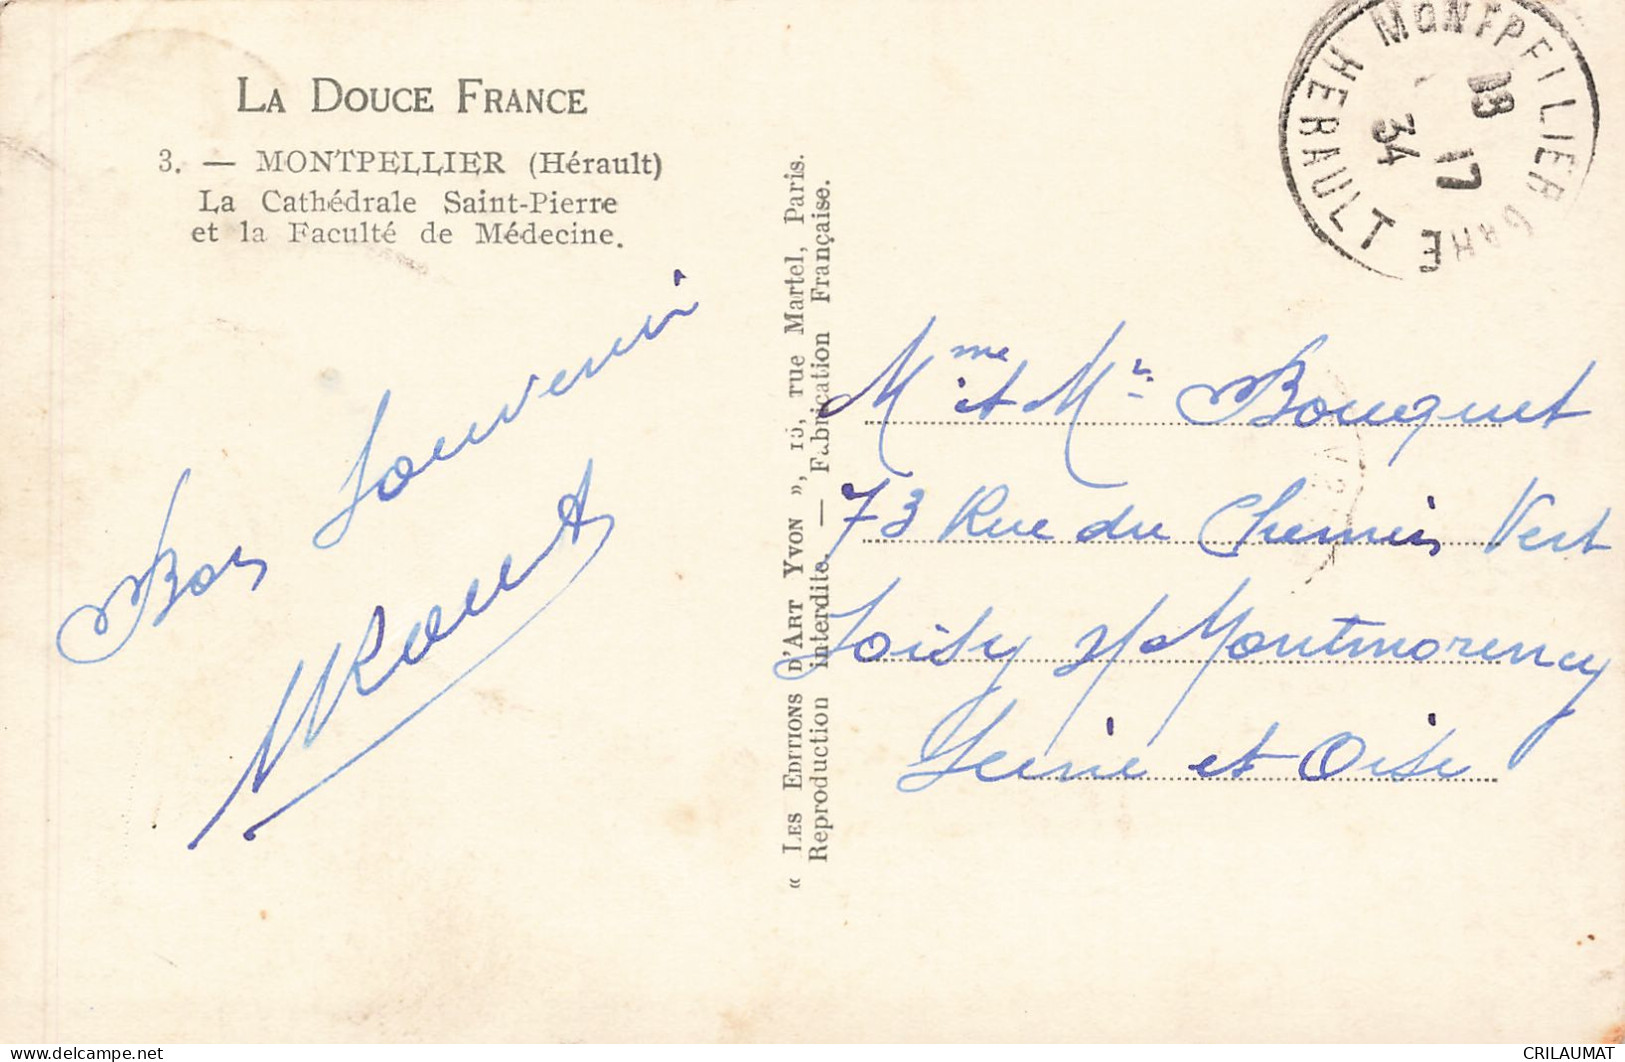 LA DOUCE FRANCE
3. — MONTPELLIER (Hérault)
La Cathédrale Saint-Pierre
et la Faculté de Médecine.
Bon Souvenir
« LES EDITIONS D'ART YVON », 15, rue Martel, Paris.
Reproduction interdite. — Fabrication Française.
MONTPELLIER GARE
HERAULT
17
34
Mme et Mr Bouquet
73 Rue du Chemin Vert
Soisy s/ Montmorency
Seine et Oise
CRILAUMAT